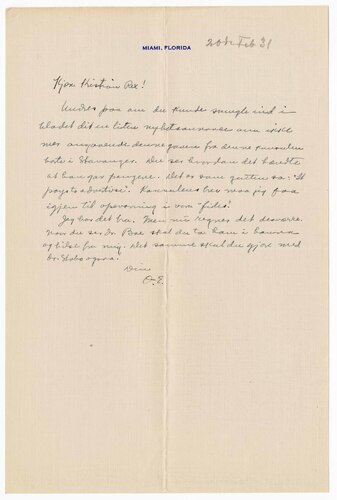 MIAMI, FLORIDA
20de Feb 31
Kjære Kristian Prex!
Undres paa om du kunde smugle ind i
bladet dit en liten nyhetsannonce om
mer angaaende denne fra denne
i Stavanger. Du ser hvordan det hændte
at han gav pengene. Det er som gutten sa: "It
pays to advertise". Konsulens brev maa jeg faa
igjen til opbevaring i vore "files".
Jeg har det bra. Men nu regner det desværre.
Naar du ser Dr. Boe skal du ta ham i haanden
og hilse fra mig. Det samme skal du gjøre med
Dr. ogsaa.
Din
O.E.